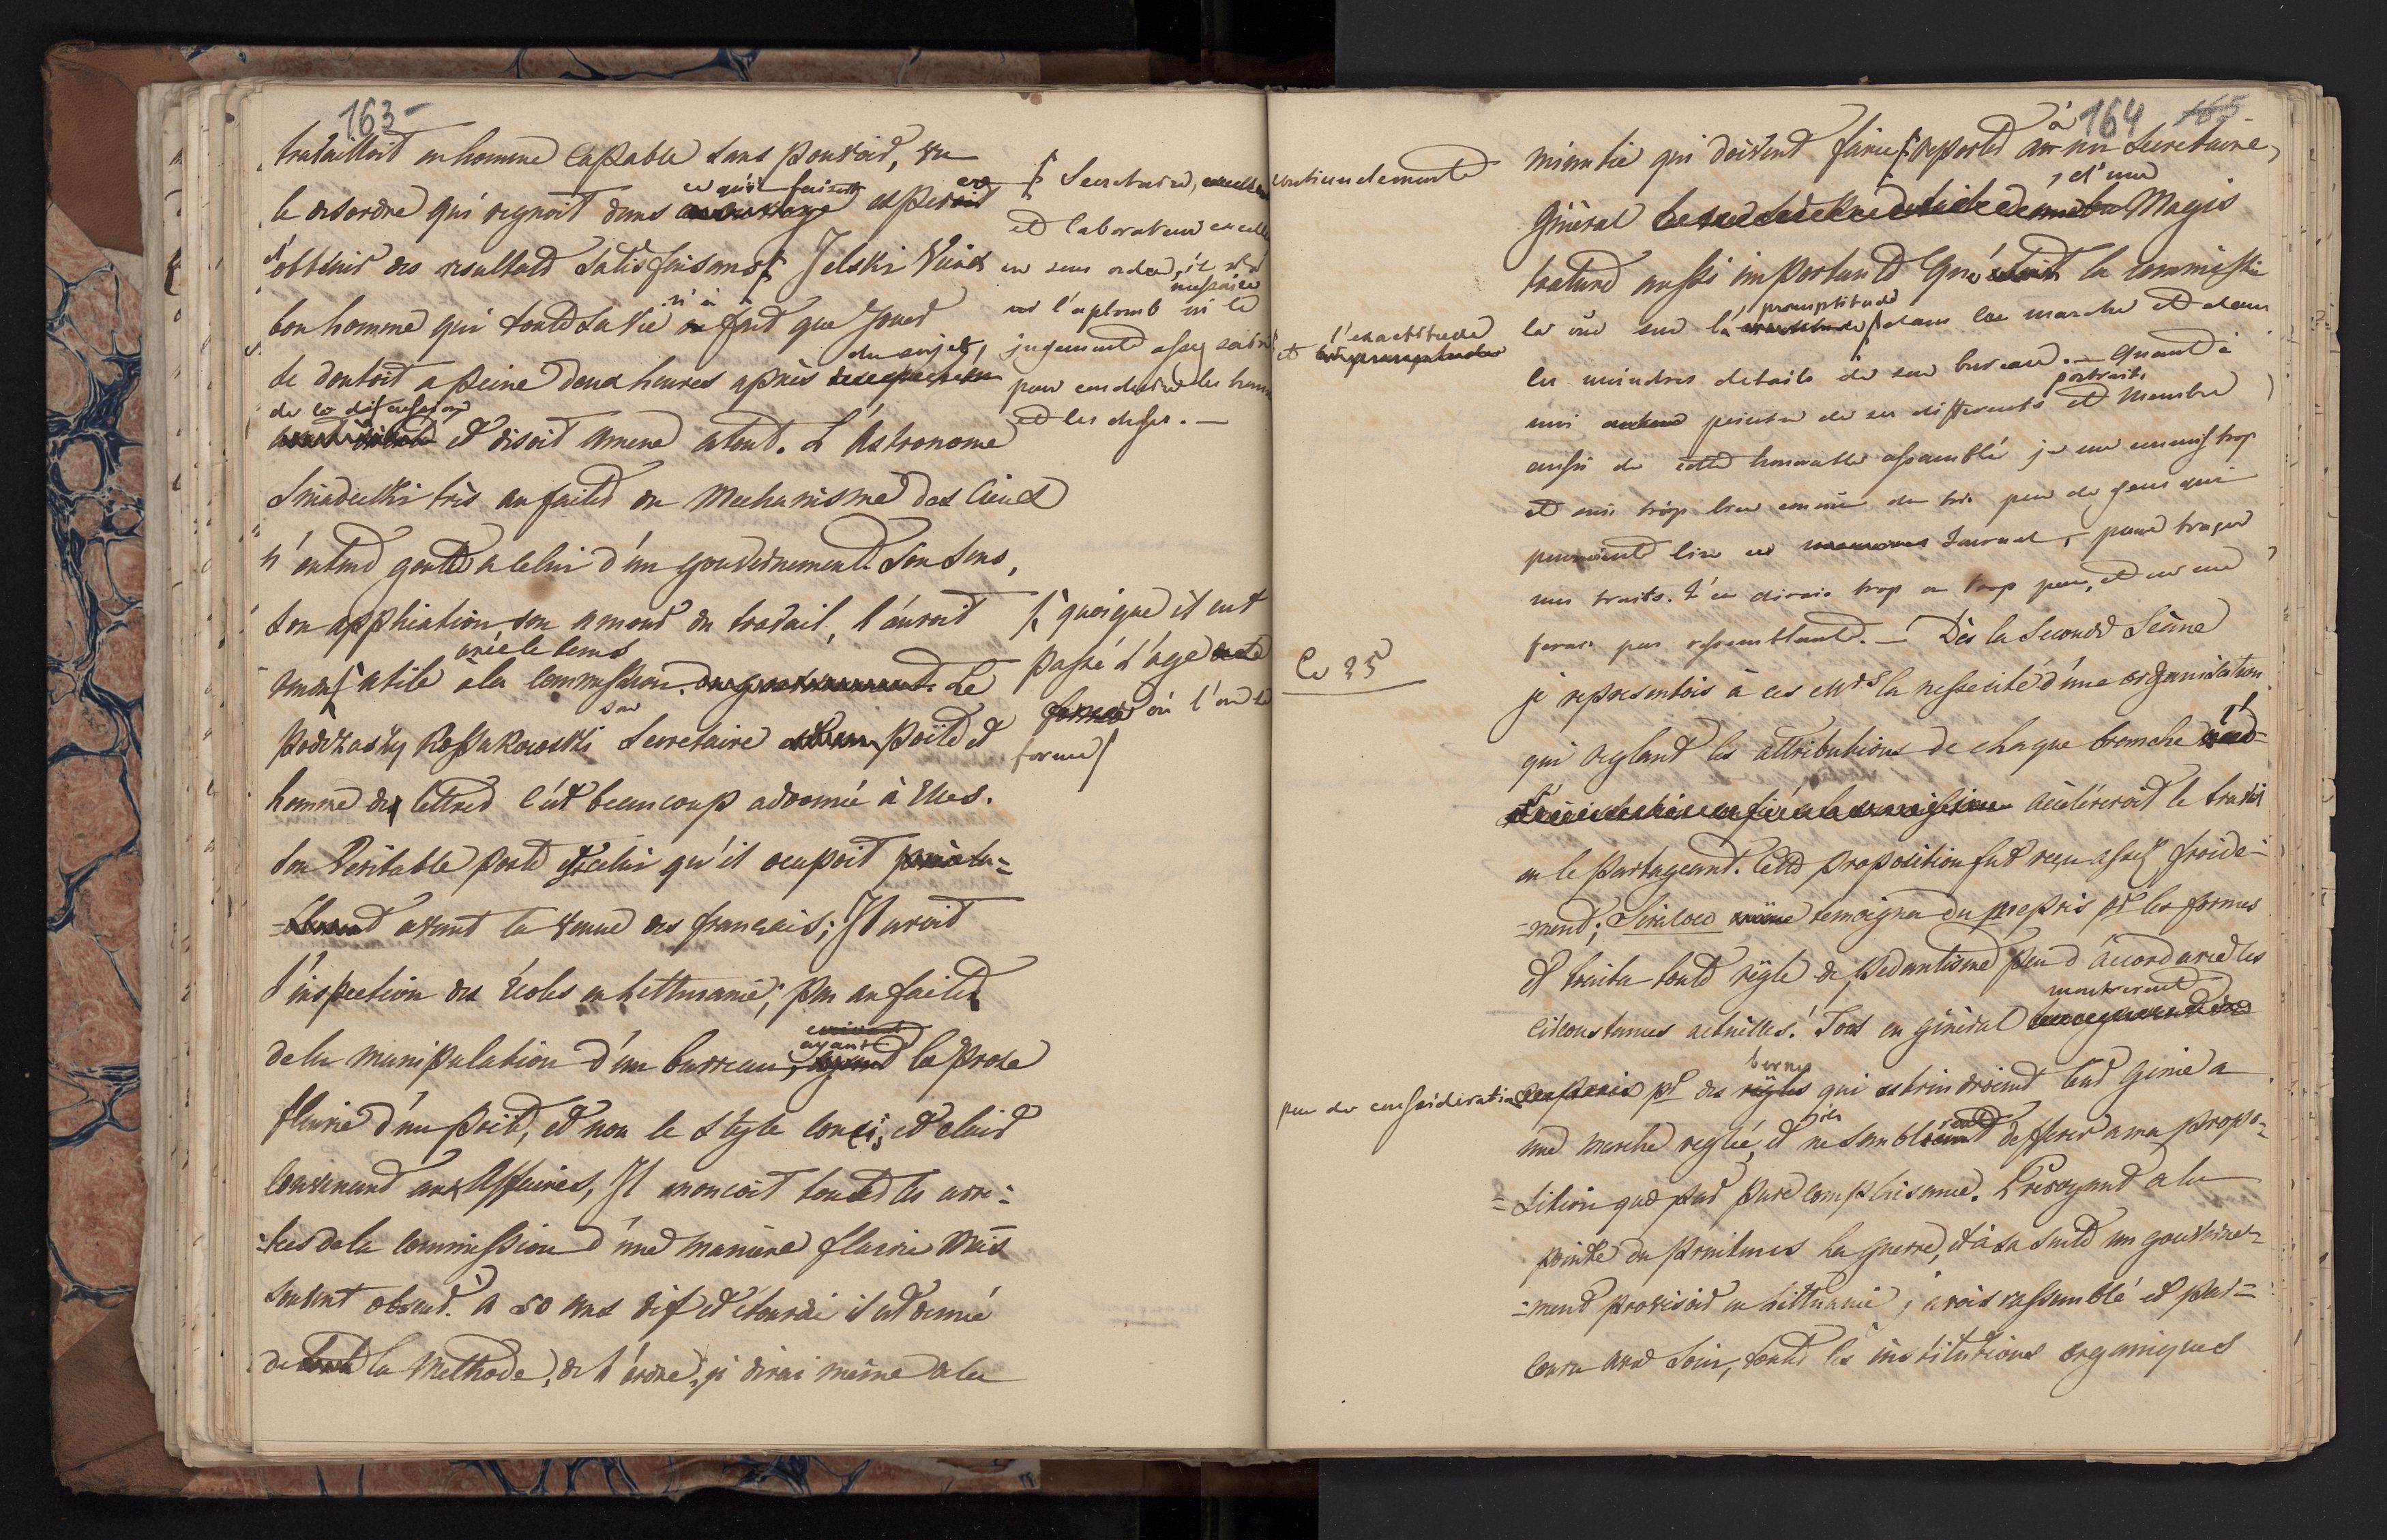 163 -
travailloit en homme capable sans pouvoir, vu
le desordre qui regnoit dans ce qu'on faisoit esperer
d'obtenir des resultats satisfaisans Jelski vieux
bon homme qui toute sa vie n'a fait que jouer
se doutoit a peine deux heures après du sujet,
de la discussion et disoit amene a tout. L'Astronome
Sniadecki très au faite du Mechanisme des Cieux
n'entend goute a celui d'un gouvernement. Son sens,
son appliation son amour du travail, l'auroit
rendu utile avec le tems à la Commission. Le
Podczaszy Kossakowski son Secretaire Poëte et
homme de lettres s'est beaucoup adonné à Elles.
Son veritable poste etoit celui qu'il ocupoit
avant la venue des français; Il avoit
l'inspection des Écoles en Lithuanie; peu au faite
de la manipulation d'un burreau, ayant la prose
fleurie d'un poète, et non le style concis, et clair
convenant aux Affaires, Il enoncoit toutes les arre-
:tées de la Commission d'une maniere fleurie mais
souvent obscure. à 50 ans vif et étourdi il est denué
de la Methode, de l'ordre, je dirai même de la
Secretaire,
et laborateur
en sous ordre, il n'a
ni l'aplomb ni le necessaire
jugement assez sain
pour conduire les hommes
et les choses. —
quoique il eut
passé l'age
où l'on se
forme
164 165
minutie qui doivent faire reporter à un Secretaire
Général d'une Magis
trature aussi importante que la commission
le veu sur la promptitude dans la marche et dans
l'exactitude
et
les moindres details de son bureau. — Quant à
moi peintre de ces differents portraits et Membre
aussi de cette honorable assemblée je me connois trop
et suis trop bien connu du tres peu de gens qui
pourroient lire ce Journal, pour tracer
mes traits. J'en dirois trop ou trop peu, et ne me
ferais pas ressemblant. — Dès la seconde Séance
Ce 25
je representois à ces Mrs la nessecité d'une organisation
qui reglant les attributions de chaque branche
accéléreroit le travail
en le partageant. Cette proposition fut reçu assez froide-
=ment; Sierakow temoigna du mepris pr les formes
et traita toute règle de pedantisme peu d'accord avec les
circonstances actuelles! Tous en général montrerent
peu de consideration pr des bornes qui astrindroient leur genie a
une marche reglée, et ne semblerent defferer a ma propo-
=sition que par pure complaisance. Prevoyant a la
pointe du printems la guerre, et à sa suite un gouverne-
=ment provisoir en Lithuanie, j'avois rassemblé et par=
couru avec soin, toutes les institutions organiques